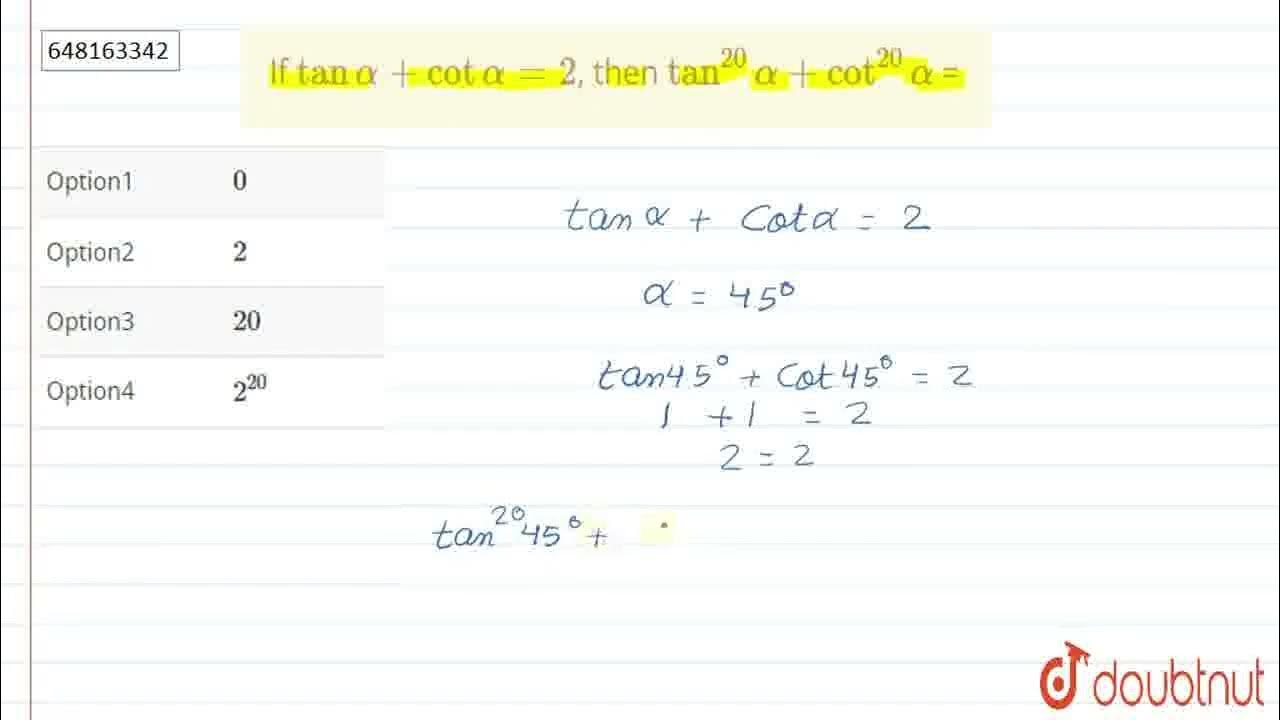 648163342
If tan α + cot α = 2, then tan²⁰ α + cot²⁰ α =
Option1 0
Option2 2
Option3 20
Option4 2²⁰
tan α + Cot α = 2
α = 45°
tan45° + Cot 45° = 2
1 + 1 = 2
2 = 2
tan²⁰45° +
doubtnut